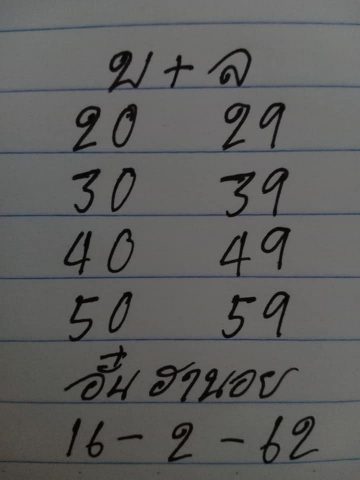 บ + ล
20 29
30 39
40 49
50 59
ฮานอย
16 - 2 - 62